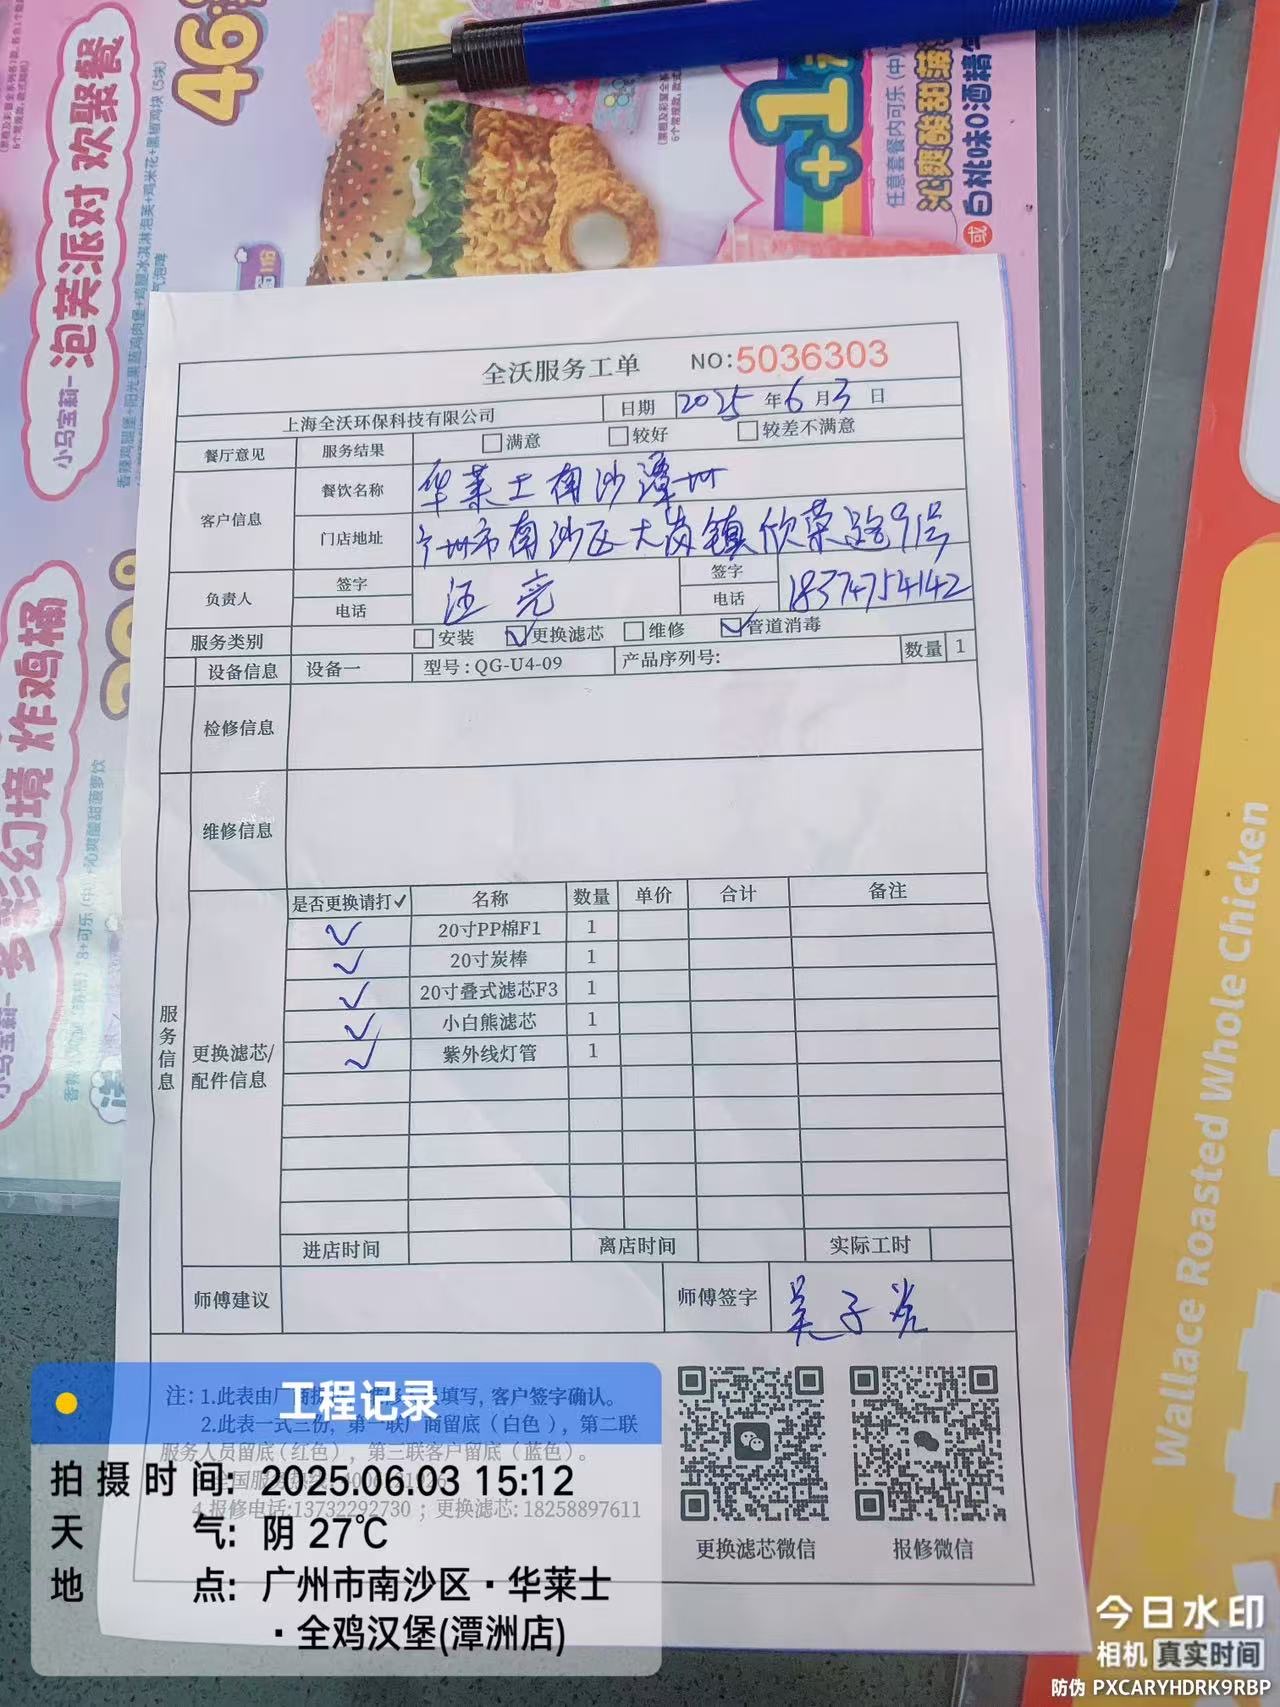 46
小马宝莉一
泡芙派对 欢聚餐
+1
任意套餐内可乐(中)
沁爽酸甜菠
或 白桃味0酒精气
小马宝莉一
幻境 炸鸡桶
全沃服务工单 NO:5036303
上海全沃环保科技有限公司 日期 2025 年 6 月 3 日
餐厅意见 服务结果 满意 较好 较差不满意
客户信息 餐饮名称 华莱士南沙潭州
门店地址 广州市南沙区大岗镇欣荣路9号
负责人 签字 汪亮 签字
电话 电话 18374754142
服务类别 安装 ✓更换滤芯 维修 ✓管道消毒
设备信息 设备一 型号:QG-U4-09 产品序列号: 数量 1
检修信息
维修信息
服务信息
更换滤芯/
配件信息
是否更换请打✓ 名称 数量 单价 合计 备注
✓ 20寸PP棉F1 1
✓ 20寸炭棒 1
✓ 20寸叠式滤芯F3 1
✓ 小白熊滤芯 1
✓ 紫外线灯管 1
进店时间 离店时间 实际工时
师傅建议 师傅签字 吴子
注: 1.此表由厂商 填写, 客户签字确认。
2.此表一式三份, 第一联厂商留底(白色), 第二联
服务人员留底(红色), 第三联客户留底(蓝色)。
全国服务热线:
4.报修电话:13732292730 ; 更换滤芯: 18258897611
更换滤芯微信 报修微信
工程记录
拍摄时间: 2025.06.03 15:12
天气: 阴 27℃
地点: 广州市南沙区·华莱士
·全鸡汉堡(潭洲店)
Wallace Roasted Whole Chicken
今日水印
相机 真实时间
防伪 PXCARYHDRK9RBP